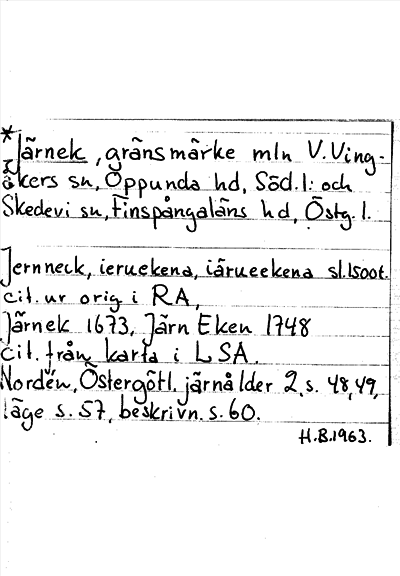 * Järnek, gränsmärke mln V.Ving-
åkers sn, Oppunda hd, Söd.l: och
Skedevi sn, Finspångaläns hd, Östg.l.
Jernneck, ieruekena, iärueekena sl.1500t.
cit. ur orig i RA,
Järnek 1673, Järn Eken 1748
cit. från karta i LSA.
Nordén, Östergötl. järnålder 2, s. 48, 49,
läge s. 57, beskrivn. s. 60.
H.B.1963.